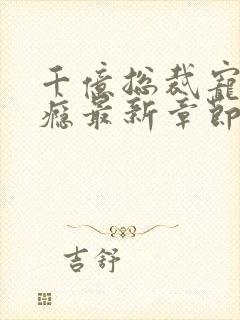 千億总裁寵
瘾最新章節
吉舒